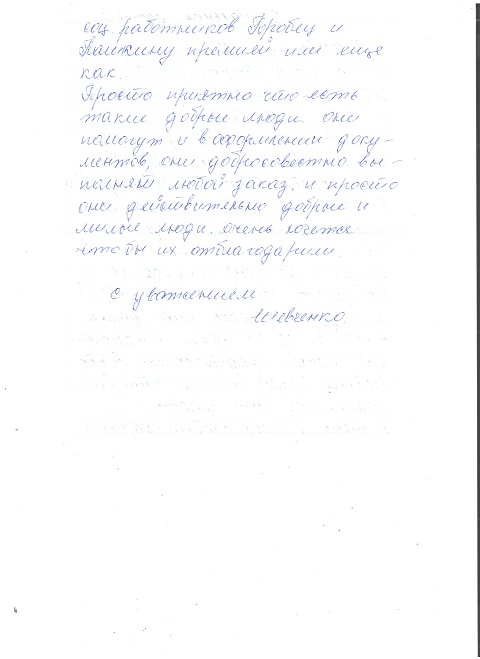 соц. работников Горобец и
Пашкину премией или еще
как.
Просто приятно что есть
такие добрые люди. они
помогут и в оформлении доку-
ментов, они добросовестно вы-
полняют любой заказ. и просто
они действительно добрые и
милые люди. очень хочется
чтобы их отблагодарили.
с уважением
Шевченко